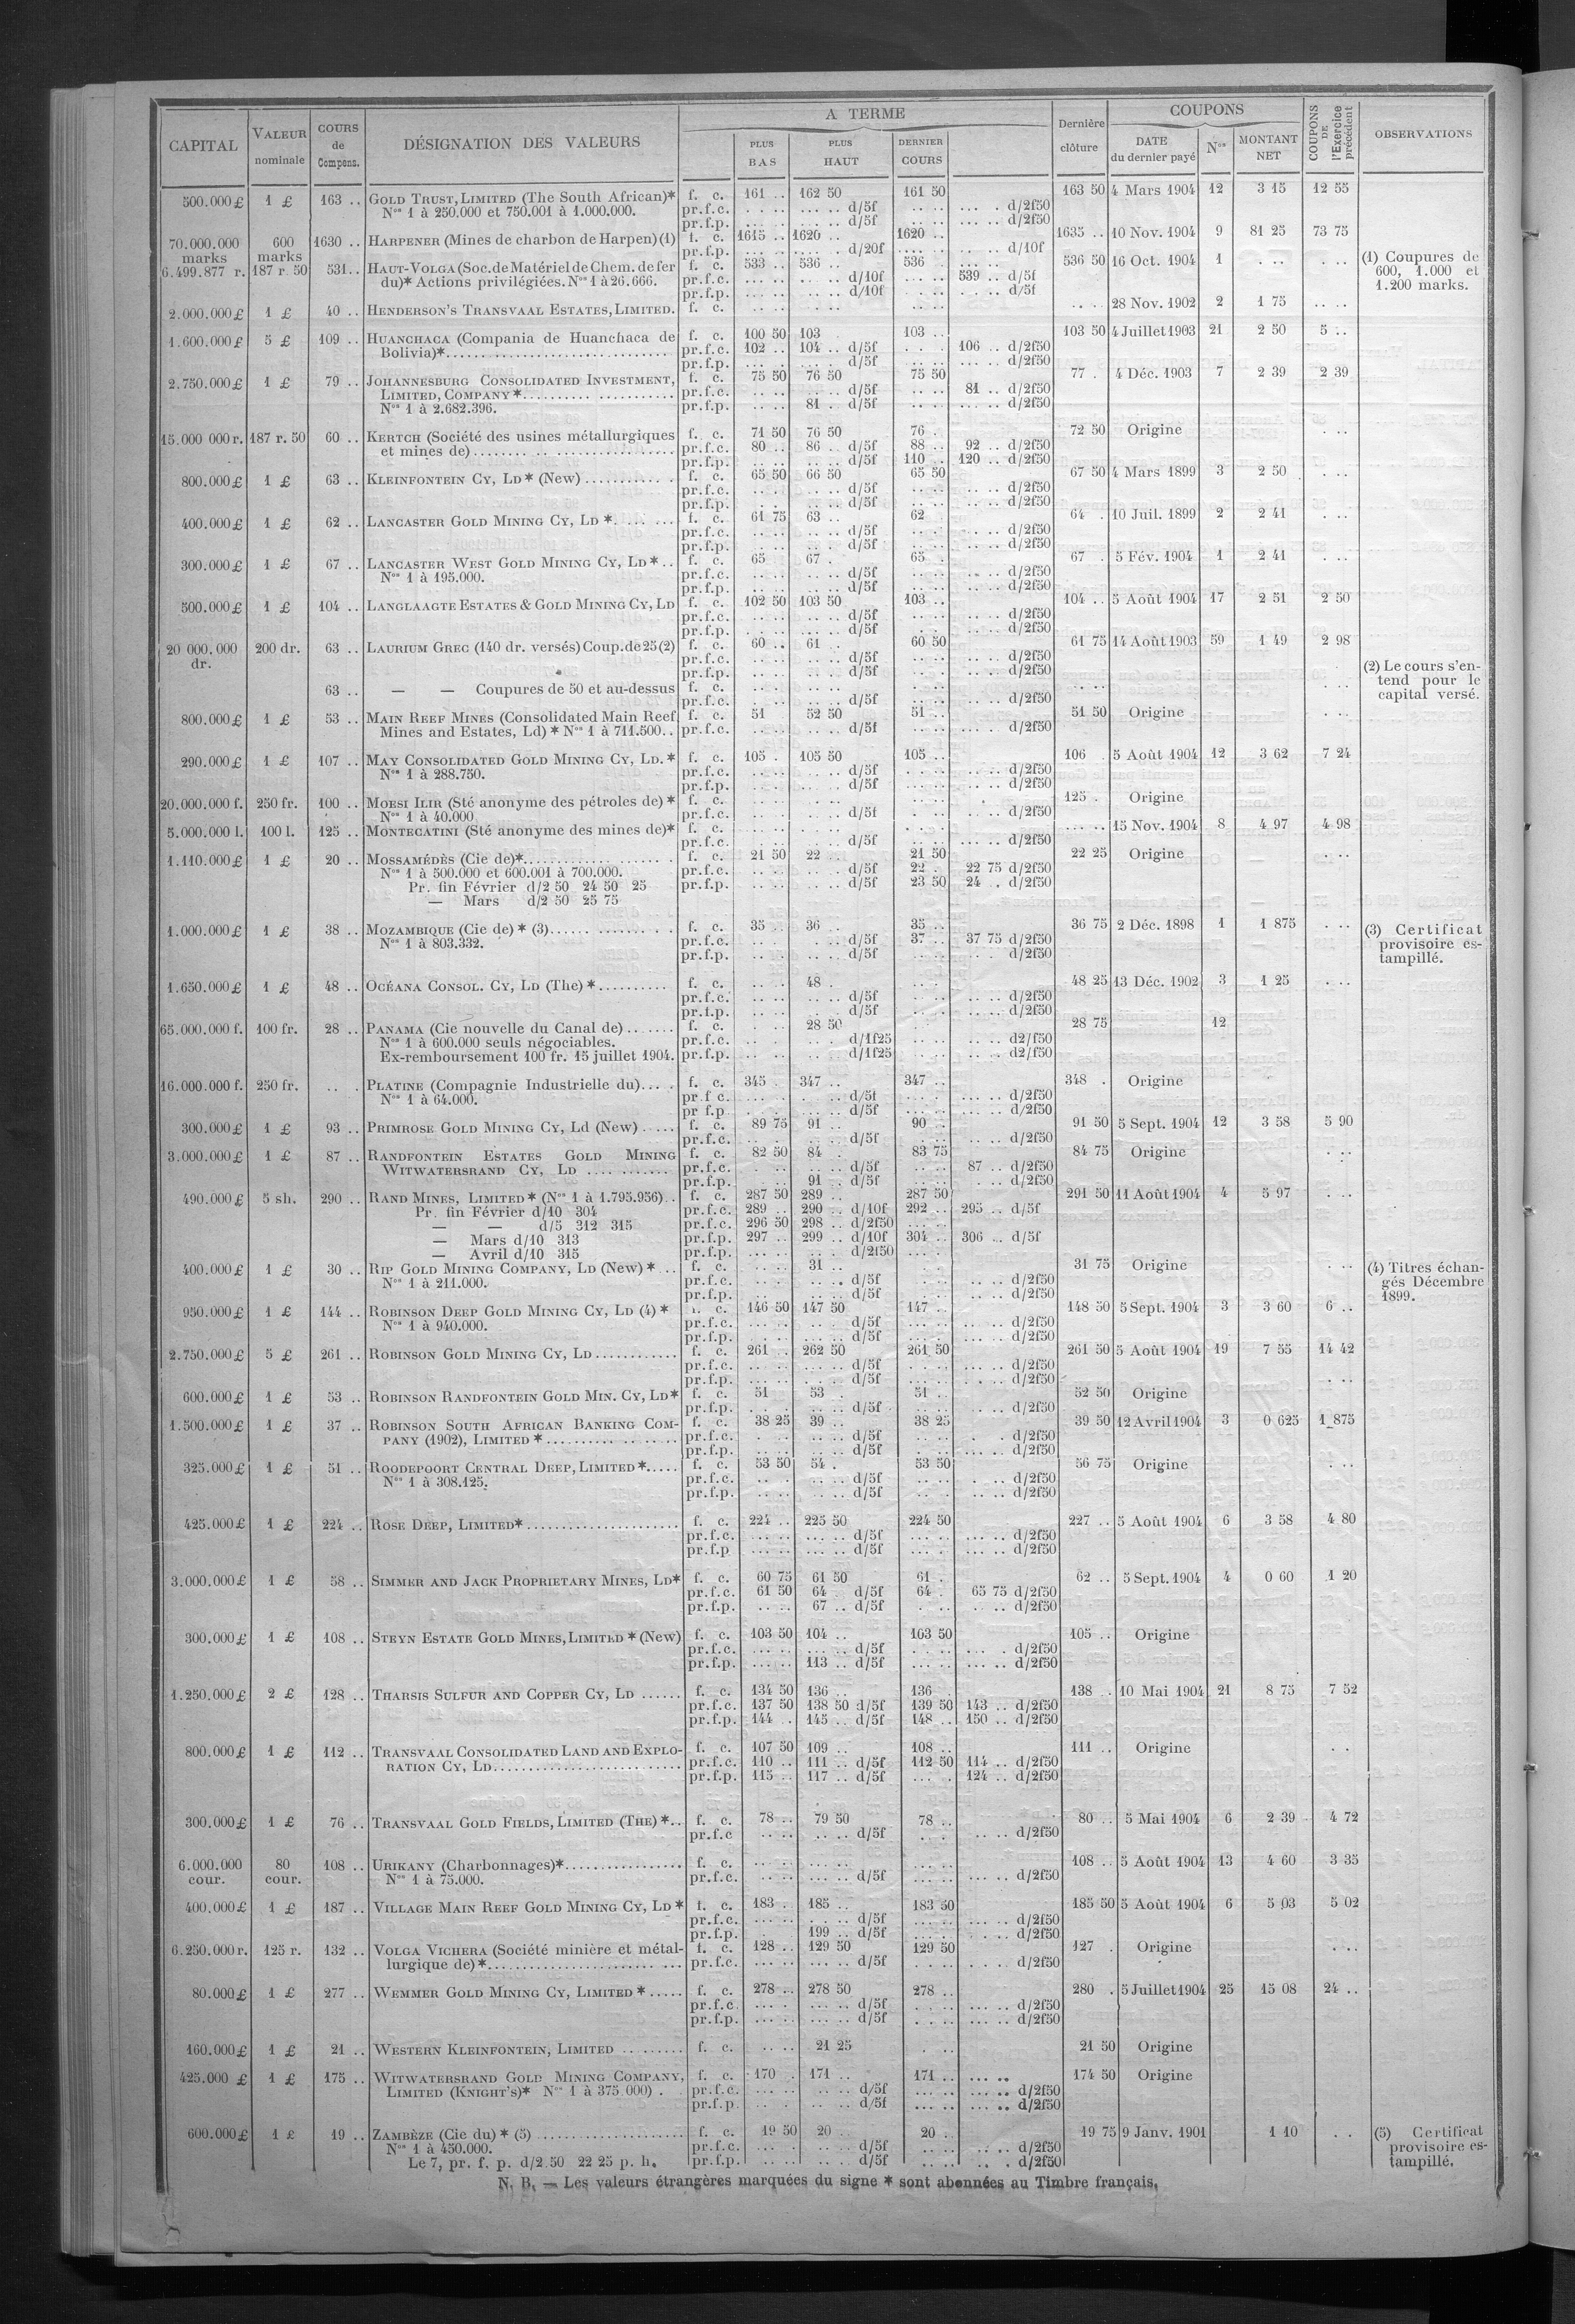 CAPITAL VALEUR nominale COURS de Compens. DÉSIGNATION DES VALEURS A TERME PLUS BAS PLUS HAUT DERNIER COURS Dernière clôture COUPONS DATE du dernier payé Nos MONTANT NET COUPONS DE l'Exercice précédent OBSERVATIONS
500.000£ 1 £ 163 .. GOLD TRUST, LIMITED (The South African)* f. c. 161 .. 162 50 161 50 163 50 4 Mars 1904 12 3 15 12 55
Nos 1 à 250.000 et 750.001 à 1.000.000. pr.f.c. d/5f d/2f50
pr.f.p. d/5f d/2f50
70.000.000 marks 600 marks 1630 .. HARPENER (Mines de charbon de Harpen)(1) f. c. 1615 .. 1620 .. 1620 .. 1635 .. 10 Nov. 1904 9 81 25 73 75
pr.f.p. d/20f d/10f
6.499.877 r. 187 r. 50 531.. HAUT-VOLGA (Soc. de Matériel de Chem. de fer f. c. 533 .. 536 .. 536 536 50 16 Oct. 1904 1 (1) Coupures de
du)* Actions privilégiées. Nos 1 à 26.666. pr.f.c. d/10f 539 .. d/5f 600, 1.000 et
pr.f.p. d/10f d/5f 1.200 marks.
2.000.000£ 1 £ 40 .. HENDERSON'S TRANSVAAL ESTATES, LIMITED. f. c. 28 Nov. 1902 2 1 75
1.600.000£ 5 £ 109 .. HUANCHACA (Compania de Huanchaca de f. c. 100 50 103 103 .. 103 50 4 Juillet 1903 21 2 50 5 ..
Bolivia)* pr.f.c. 102 .. 104 .. d/5f 106 .. d/2f50
pr.f.p. d/5f d/2f50
2.750.000£ 1 £ 79 .. JOHANNESBURG CONSOLIDATED INVESTMENT, f. c. 75 50 76 50 75 50 77 . 4 Déc. 1903 7 2 39 2 39
LIMITED, COMPANY* pr.f.c. d/5f 81 .. d/2f50
Nos 1 à 2.682.396. pr.f.p. 81 . d/5f d/2f50
15.000 000 r. 187 r. 50 60 .. KERTCH (Société des usines métallurgiques f. c. 71 50 76 50 76 . 72 50 Origine
et mines de) pr.f.c. 80 .. 86 .. d/5f 88 .. 92 .. d/2f50
pr.f.p. d/5f 110 .. 120 .. d/2f50
800.000£ 1 £ 63 .. KLEINFONTEIN CY, LD* (New) f. c. 65 50 66 50 65 50 67 50 4 Mars 1899 3 2 50
pr.f.c. d/5f d/2f50
pr.f.p. d/5f d/2f50
400.000£ 1 £ 62 .. LANCASTER GOLD MINING CY, LD * f. c. 61 75 63 .. 62 64 . 10 Juil. 1899 2 2 41
pr.f.c. d/5f d/2f50
pr.f.p. d/5f d/2f50
300.000£ 1 £ 67 .. LANCASTER WEST GOLD MINING CY, LD * .. f. c. 65 67 . 65 . 67 . 5 Fév. 1904 1 2 41
Nos 1 à 195.000. pr.f.c. d/5f d/2f50
pr.f.p. d/5f d/2f50
500.000£ 1 £ 104 .. LANGLAAGTE ESTATES & GOLD MINING CY, LD f. c. 102 50 103 50 103 .. 104 .. 5 Août 1904 17 2 51 2 50
pr.f.c. d/5f d/2f50
pr.f.p. d/5f d/2f50
20 000.000 dr. 200 dr. 63 .. LAURIUM GREC (140 dr. versés) Coup. de 25 (2) f. c. 60 .. 61 .. 60 50 61 75 14 Août 1903 59 1 49 2 98
pr.f.c. d/5f d/2f50 (2) Le cours s'en-
pr.f.p. d/5f d/2f50 tend pour le
63 .. — — Coupures de 50 et au-dessus f. c. capital versé.
pr.f.c. d/5f d/2f50
800.000£ 1 £ 53 .. MAIN REEF MINES (Consolidated Main Reef f. c. 51 52 50 51 .. 51 50 Origine
Mines and Estates, Ld) * Nos 1 à 711.500.. pr.f.c. d/5f d/2f50
290.000£ 1 £ 107 .. MAY CONSOLIDATED GOLD MINING CY, LD. * f. c. 105 . 105 50 105 .. 106 5 Août 1904 12 3 62 7 24
Nos 1 à 288.750. pr.f.c. d/5f d/2f50
pr.f.p. d/5f d/2f50
20.000.000 f. 250 fr. 100 .. MOESI ILIR (Sté anonyme des pétroles de) * f. c. 125 . Origine
Nos 1 à 40.000 pr.f.c. d/5f d/2f50
5.000.000 l. 100 l. 125 .. MONTECATINI (Sté anonyme des mines de)* f. c. 15 Nov. 1904 8 4 97 4 98
pr.f.c. d/5f d/2f50
1.110.000£ 1 £ 20 .. MOSSAMÉDÈS (Cie de)* f. c. 21 50 22 .. 21 50 22 25 Origine
Nos 1 à 500.000 et 600.001 à 700.000. pr.f.c. d/5f 22 . 22 75 d/2f50
Pr. fin Février d/2 50 24 50 25 pr.f.p. d/5f 23 50 24 . d/2f50
— Mars d/2 50 25 75
1.000.000£ 1 £ 38 .. MOZAMBIQUE (Cie de) * (3) f. c. 35 .. 36 .. 35 .. 36 75 2 Déc. 1898 1 1 875 (3) Certificat
Nos 1 à 803.332. pr.f.c. d/5f 37 .. 37 75 d/2f50 provisoire es-
pr.f.p. d/5f d/2f50 tampillé.
1.650.000£ 1 £ 48 .. OCÉANA CONSOL. CY, LD (The) * f. c. 48 . 48 25 13 Déc. 1902 3 1 25
pr.f.c. d/5f d/2f50
pr.f.p. d/5f d/2f50
65.000.000 f. 100 fr. 28 .. PANAMA (Cie nouvelle du Canal de) f. c. 28 50 28 75 12
Nos 1 à 600.000 seuls négociables. pr.f.c. d/1f25 d2/f50
Ex-remboursement 100 fr. 15 juillet 1904. pr.f.p. d/1f25 d2/f50
16.000.000 f. 250 fr. PLATINE (Compagnie Industrielle du) f. c. 345 . 347 .. 347 .. 348 . Origine
Nos 1 à 64.000. pr.f c. d/5f d/2f50
pr f.p d/5f d/2f50
300.000£ 1 £ 93 .. PRIMROSE GOLD MINING CY, Ld (New) f. c. 89 75 91 .. 90 .. 91 50 5 Sept. 1904 12 3 58 5 90
pr.f.c. d/5f d/2f50
3.000.000£ 1 £ 87 .. RANDFONTEIN ESTATES GOLD MINING f. c. 82 50 84 . 83 75 84 75 Origine
WITWATERSRAND CY, LD pr.f.c. d/5f 87 .. d/2f50
pr.f.p. 91 . d/5f d/2f50
490.000£ 5 sh. 290 .. RAND MINES, LIMITED * (Nos 1 à 1.795.956) .. f. c. 287 50 289 .. 287 50 291 50 11 Août 1904 4 5 97
Pr. fin Février d/10 304 pr.f.c. 289 .. 290 .. d/10f 292 .. 295 .. d/5f
— — d/5 312 315 pr.f.c. 296 50 298 .. d/2f50
— Mars d/10 313 pr.f.p. 297 .. 299 .. d/10f 304 .. 306 .. d/5f
— Avril d/10 315 pr.f.p. d/2f50
400.000£ 1 £ 30 .. RIP GOLD MINING COMPANY, LD (New) * .. f. c. 31 .. 31 75 Origine (4) Titres échan-
Nos 1 à 211.000. pr.f.c. d/5f d/2f50 gés Décembre
pr.f.p. d/5f d/2f50 1899.
950.000£ 1 £ 144 .. ROBINSON DEEP GOLD MINING CY, LD (4) * f. c. 146 50 147 50 147 .. 148 50 5 Sept. 1904 3 3 60 6 ..
Nos 1 à 940.000. pr.f.c. d/5f d/2f50
pr.f.p. d/5f d/2f50
2.750.000£ 5 £ 261 .. ROBINSON GOLD MINING CY, LD f. c. 261 .. 262 50 261 50 261 50 5 Août 1904 19 7 55 14 42
pr.f.c. d/5f d/2f50
pr.f.p. d/5f d/2f50
600.000£ 1 £ 53 .. ROBINSON RANDFONTEIN GOLD MIN. CY, LD* f. c. 51 53 . 51 .. 52 50 Origine
pr.f.p. d/5f d/2f50
1.500.000£ 1 £ 37 .. ROBINSON SOUTH AFRICAN BANKING COM- f. c. 38 25 39 .. 38 25 39 50 12 Avril 1904 3 0 625 1 875
PANY (1902), LIMITED * pr.f.c. d/5f d/2f50
pr.f.p. d/5f d/2f50
325.000£ 1 £ 51 .. ROODEPOORT CENTRAL DEEP, LIMITED * f. c. 53 50 54 . 53 50 56 75 Origine
Nos 1 à 308.125. pr.f.c. d/5f d/2f50
pr.f.p. d/5f d/2f50
425.000£ 1 £ 224 .. ROSE DEEP, LIMITED* f. c. 224 .. 225 50 224 50 227 .. 5 Août 1904 6 3 58 4 80
pr.f.c. d/5f d/2f50
pr.f.p d/5f d/2f50
3.000.000£ 1 £ 58 .. SIMMER AND JACK PROPRIETARY MINES, LD* f. c. 60 75 61 50 61 . 62 .. 5 Sept. 1904 4 0 60 1 20
pr.f.c. 61 50 64 .. d/5f 64 . 65 75 d/2f50
pr.f.p. 67 .. d/5f d/2f50
300.000£ 1 £ 108 .. STEYN ESTATE GOLD MINES, LIMITED * (New) f. c. 103 50 104 .. 103 50 105 .. Origine
pr.f.c. d/5f d/2f50
pr.f.p. 113 .. d/5f d/2f50
1.250.000£ 2 £ 128 .. THARSIS SULFUR AND COPPER CY, LD f. c. 134 50 136 .. 136 . 138 .. 10 Mai 1904 21 8 75 7 52
pr.f.c. 137 50 138 50 d/5f 139 50 143 .. d/2f50
pr.f.p. 144 .. 145 .. d/5f 148 .. 150 .. d/2f50
800.000£ 1 £ 112 .. TRANSVAAL CONSOLIDATED LAND AND EXPLO- f. c. 107 50 109 .. 108 .. 111 .. Origine
RATION CY, LD pr.f.c. 110 .. 111 .. d/5f 112 50 114 .. d/2f50
pr.f.p. 115 .. 117 .. d/5f 124 .. d/2f50
300.000£ 1 £ 76 .. TRANSVAAL GOLD FIELDS, LIMITED (THE) * .. f. c. 78 .. 79 50 78 .. 80 .. 5 Mai 1904 6 2 39 4 72
pr.f.c d/5f d/2f50
6.000.000 cour. 80 cour. 108 .. URIKANY (Charbonnages)* f. c. 108 .. 5 Août 1904 13 4 60 3 35
Nos 1 à 75.000. pr.f.c. d/5f d/2f50
400.000£ 1 £ 187 .. VILLAGE MAIN REEF GOLD MINING CY, LD * f. c. 183 . 185 .. 183 50 185 50 5 Août 1904 6 5 03 5 02
pr.f.c. d/5f d/2f50
pr.f.p. 199 .. d/5f d/2f50
6.250.000 r. 125 r. 132 .. VOLGA VICHERA (Société minière et métal- f. c. 128 .. 129 50 129 50 127 . Origine
lurgique de) * pr.f.c. d/5f d/2f50
80.000£ 1 £ 277 .. WEMMER GOLD MINING CY, LIMITED * f. c. 278 .. 278 50 278 .. 280 . 5 Juillet 1904 25 15 08 24 ..
pr.f.c d/5f d/2f50
pr.f.p. d/5f d/2f50
160.000£ 1 £ 21 .. WESTERN KLEINFONTEIN, LIMITED f. c. 21 25 21 50 Origine
425.000 £ 1 £ 175 .. WITWATERSRAND GOLD MINING COMPANY, f. c. 170 . 171 .. 171 .. 174 50 Origine
LIMITED (KNIGHT'S)* Nos 1 à 375 000) . pr.f.c. d/5f d/2f50
pr.f.p. d/5f d/2f50
600.000£ 1 £ 19 .. ZAMBÈZE (Cie du) * (5) f. c. 19 50 20 .. 20 .. 19 75 9 Janv. 1901 1 10 (5) Certificat
Nos 1 à 450.000. pr.f.c. d/5f d/2f50 provisoire es-
Le 7, pr. f. p. d/2 50 22 25 p. h. pr.f.p. d/5f d/2f50 tampillé.
N. B. — Les valeurs étrangères marquées du signe * sont abonnées au Timbre français.